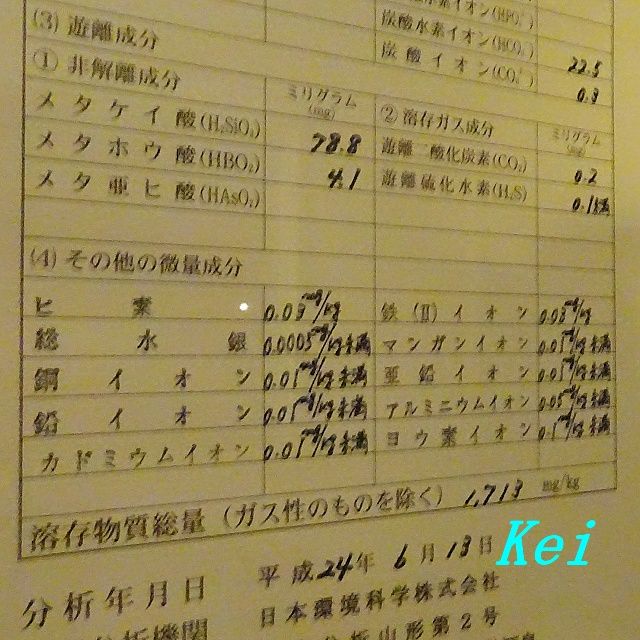 (3) 遊離成分
① 非解離成分 ミリグラム (mg)
メタケイ酸(H₂SiO₃) 78.8
メタホウ酸(HBO₂) 4.1
メタ亜ヒ酸(HAsO₂)
炭酸水素イオン(HCO₃⁻) 22.5
炭酸イオン(CO₃²⁻) 0.3
② 溶存ガス成分 ミリグラム (mg)
遊離二酸化炭素(CO₂) 0.2
遊離硫化水素(H₂S) 0.1未満
(4) その他の微量成分
ヒ素 0.03mg/kg 鉄(Ⅱ)イオン 0.03mg/kg
総水銀 0.0005mg/kg未満 マンガンイオン 0.01mg/kg未満
銅イオン 0.01mg/kg未満 亜鉛イオン 0.01mg/kg未満
鉛イオン 0.01mg/kg未満 アルミニウムイオン 0.05mg/kg未満
カドミウムイオン 0.01mg/kg未満 ヨウ素イオン 0.1mg/kg未満
溶存物質総量(ガス性のものを除く) 1,713 mg/kg
分析年月日 平成24年6月13日
分析機関 日本環境科学株式会社
分析山形第2号
Kei